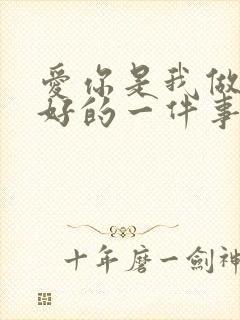 爱你是我做
好的一件事
十年磨一劍神